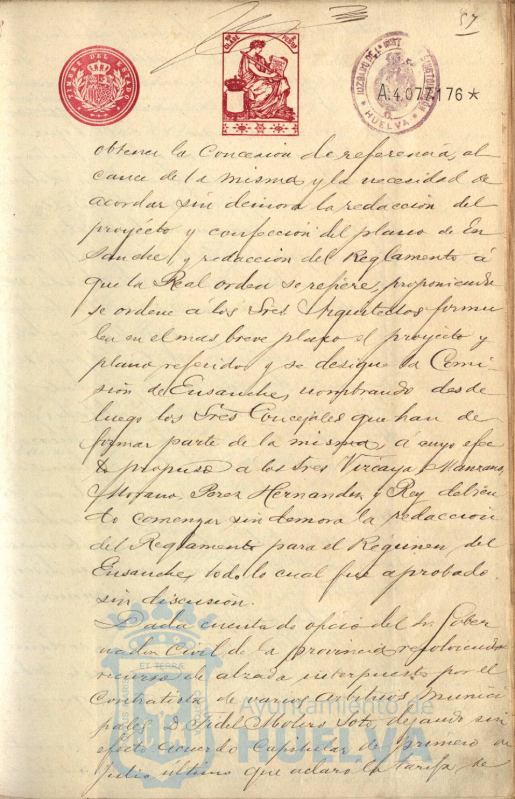 57
TIMBRE DEL ESTADO
A.4.077.176★
HUELVA
obtener la Concesion de referencia, al
cance de la misma y la necesidad de
acordar sin demora la redaccion del
proyecto y confeccion del plano de En
sanche y redaccion del Reglamento á
que la Real orden se refiere, proponiendo
se ordene á los Sres Arquitectos formu
len en el mas breve plazo el proyecto y
plano referidos y se designe la Comi-
sión de Ensanche, nombrando desde
luego los Sres Concejales que han de
formar parte de la misma, á cuyo efec
to propuso a los Sres Vizcaya, Manzano,
Morano, Perez Hernandez y Rey debien
do comenzar sin demora la redaccion
del Reglamento para el Regimen del
Ensanche, todo lo cual fue aprobado
sin discusión.
Dada cuenta de oficio del Sr. Gober
nador Civil de la provincia resolviendo
recurso de alzada interpuesto por el
Contratista de varios Arbitrios Munici
pales D. Fidel Molers Soto, dejando sin
efecto acuerdo Capitular de primero de
Julio último que aclaro la tarifa de
Ayuntamiento de
HUELVA